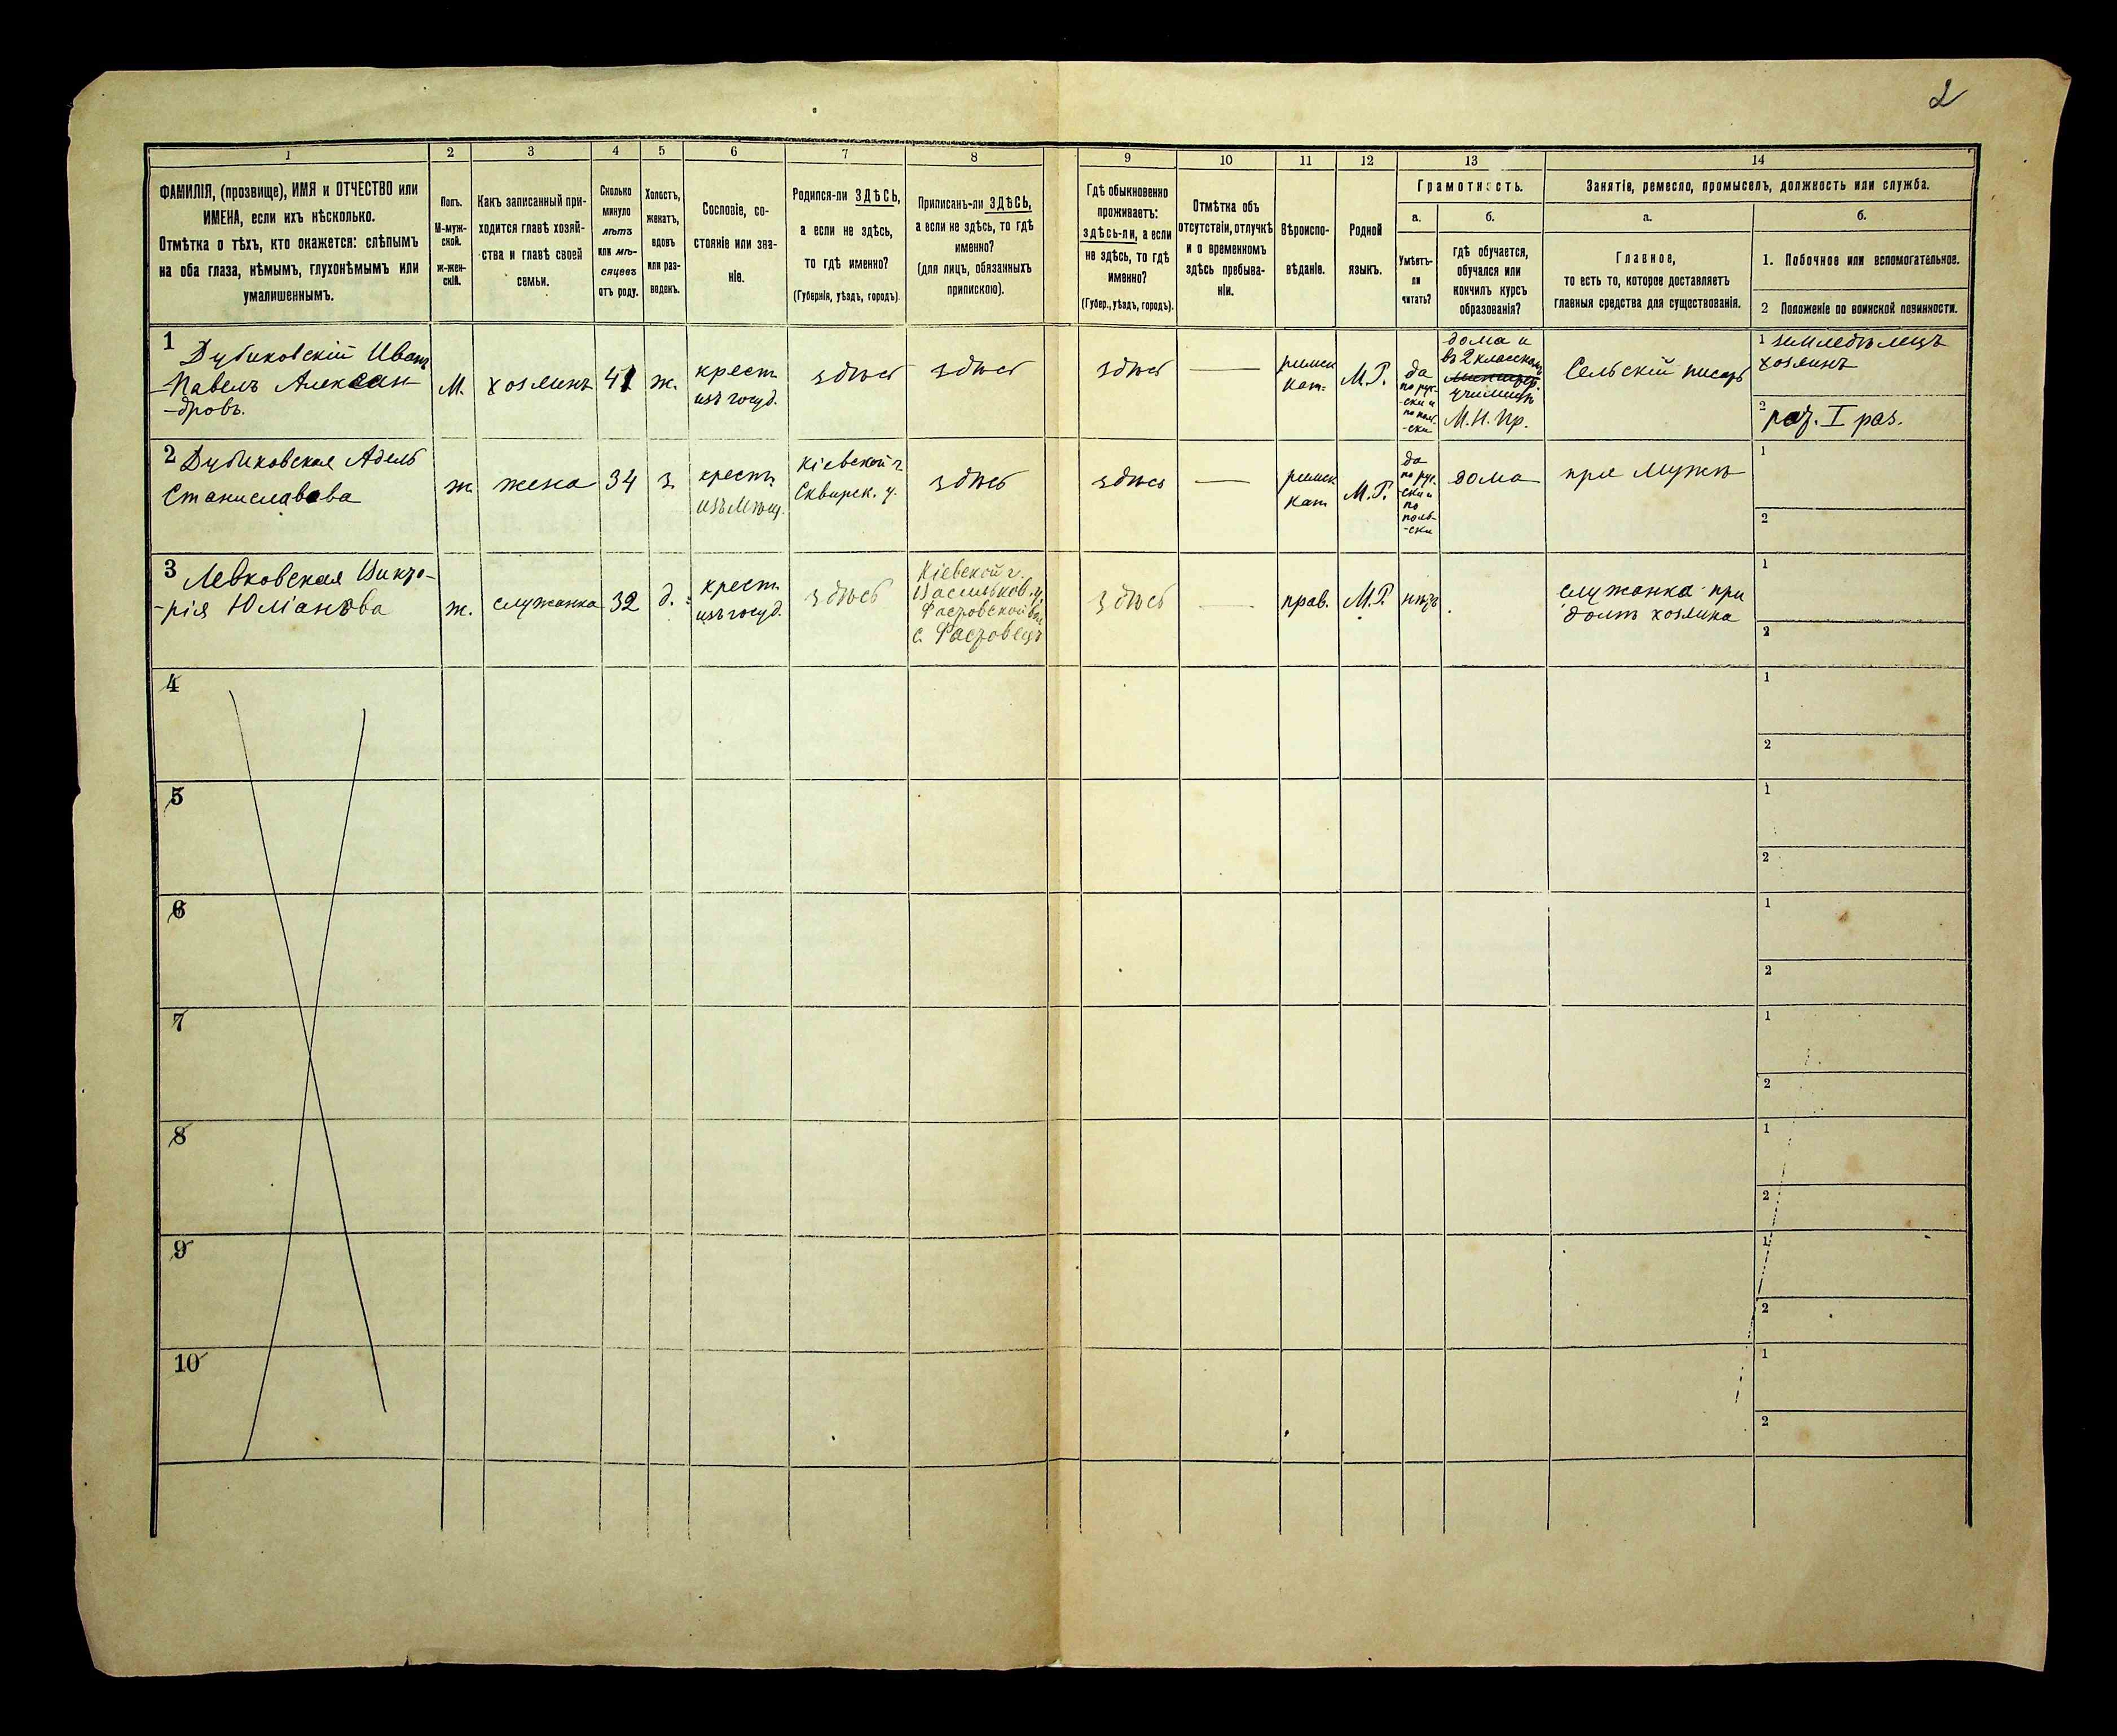 2
1
2
3
4
5
6
7
8
9
10
11
12
13
14
ФАМИЛІЯ, (прозвище), ИМЯ и ОТЧЕСТВО или
ИМЕНА, если ихъ нѣсколько.
Отмѣтка о тѣхъ, кто окажется: слѣпымъ
на оба глаза, нѣмымъ, глухонѣмымъ или
умалишеннымъ.
Полъ.
М-муж-
ской.
ж-жен-
скій.
Какъ записанный при-
ходится главѣ хозяй-
ства и главѣ своей
семьи.
Сколько
минуло
лѣтъ
или мѣ-
сяцевъ
отъ роду.
Холостъ,
женатъ,
вдовъ
или раз-
веденъ.
Сословіе, со-
стояніе или зва-
ніе.
Родился-ли ЗДѢСЬ,
а если не здѣсь,
то гдѣ именно?
(Губернія, уѣздъ, городъ)
Приписанъ-ли ЗДѢСЬ,
а если не здѣсь, то гдѣ
именно?
(для лицъ, обязанныхъ
припискою).
Гдѣ обыкновенно
проживаетъ:
здѣсь-ли, а если
не здѣсь, то гдѣ
именно?
(Губер., уѣздъ, городъ).
Отмѣтка объ
отсутствіи, отлучкѣ
и о временномъ
здѣсь пребыва-
ніи.
Вѣроиспо-
вѣданіе.
Родной
языкъ.
Грамотность.
а.
б.
Умѣетъ-
ли
читать?
гдѣ обучается,
обучался или
кончилъ курсъ
образованія?
Занятіе, ремесло, промыселъ, должность или служба.
а.
б.
Главное,
то есть то, которое доставляетъ
главныя средства для существованія.
1. Побочное или вспомогательное.
2 Положеніе по воинской повинности.
1
Дубиковскій Иванъ
-Павелъ Алексан-
-дровъ.
М.
хозяинъ
41
ж.
крест.
изъ госуд.
здѣсь
здѣсь
здѣсь
—
римск
кат.
М.Р.
да
по рус-
-ски и
по поль-
-ски
дома и
въ 2 классном
училищѣ
М.Н.Пр.
Сельскій писарь
1 земледѣлецъ
хозяинъ
2
рат. I раз.
2 Дубиковская Адель
Станиславова
ж.
жена
34
з.
крест.
изъ мѣщ.
Кіевской г.
Сквирск. у.
здѣсь
здѣсь
—
римск
кат
М.Р.
да
по рус-
-ски и
по
поль-
-ски
дома
при мужѣ
1
2
3
Левковская Викто-
-рія Юліанова
ж.
служанка
32
д.
крест.
изъ госуд.
здѣсь
Кіевской г.
Васильков. у.
Фастовской вол
с. Фастовецъ
здѣсь
—
прав.
М.Р.
нѣтъ
служанка при
домѣ хозяина
1
2
4
1
2
5
1
2
6
1
2
7
1
2
8
1
2
9
1
2
10
1
2